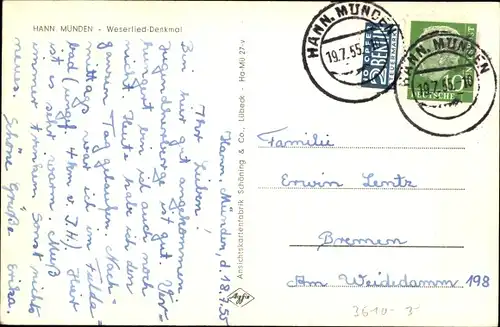 HANN. MÜNDEN - Weserlied-Denkmal
Hann. Münden, d. 18.7.55
Ihr Lieben!
Bin hier gut angekommen
Jugendherberge ist gut. Ver-
hungert bin ich auch noch
nicht. Heute habe ich den
ganzen Tag gelaufen. Nach-
mittags war ich im Fulda-
bad (ungef. 4 km v. J.H.) Hier
ist es sehr warm. Muß
immer trinken. Sonst nichts
neues. Schöne Grüße Erika.
Ansichtskartenfabrik Schöning & Co., Lübeck - Ha-Mü 27-v
Agfa
HANN. MÜNDEN
19.7.55
2 BERLIN
HANN. MÜNDEN
10
DEUTSCHE
Familie
Erwin Lentz
Bremen
Am Weidedamm 198
3610-3-